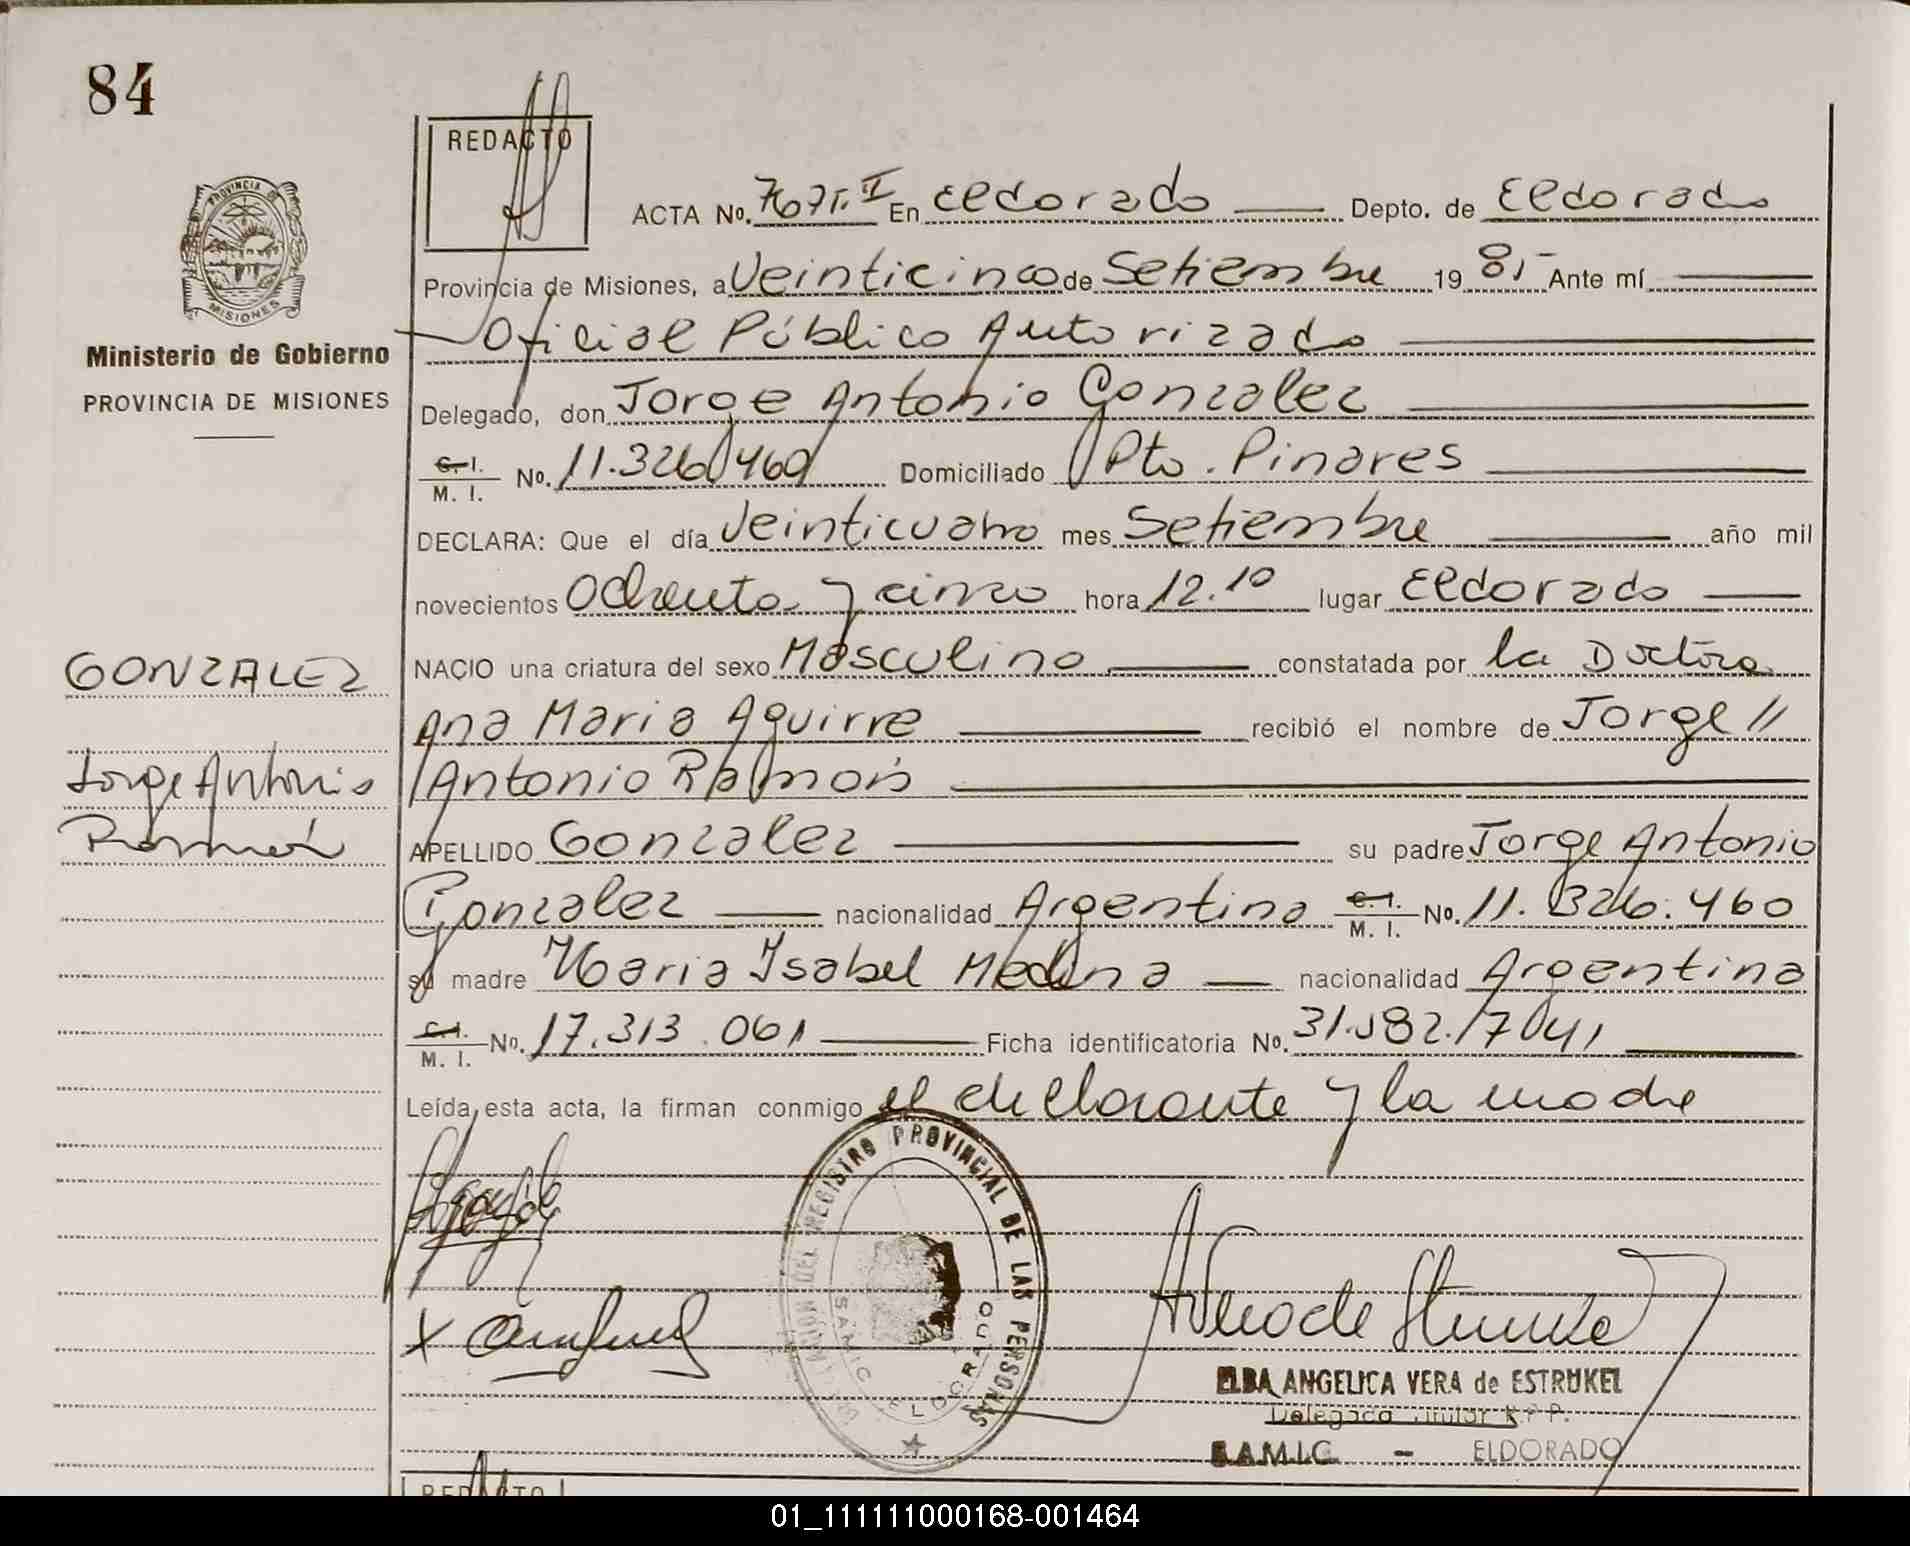 84
REDACTO
ACTA No. 767 T. I En Eldorado Depto. de Eldorado
PROVINCIA DE
MISIONES
Provincia de Misiones, a Veinticinco de Setiembre 1985 Ante mí
Oficial Público Autorizado
Ministerio de Gobierno
PROVINCIA DE MISIONES
Delegado, don Jorge Antonio Gonzalez
C. I.
M. I. No. 11.326.460 Domiciliado Pto. Pinares
DECLARA: Que el día Veinticuatro mes Setiembre año mil
novecientos Ochenta y cinco hora 12.10 lugar Eldorado
GONZALEZ
NACIO una criatura del sexo Masculino constatada por la Doctora
Ana Maria Aguirre recibió el nombre de Jorge //
Jorge Antonio
Antonio Ramón
Ramón
APELLIDO Gonzalez su padre Jorge Antonio
Gonzalez nacionalidad Argentina C. I. M. I. No. 11.326.460
su madre Maria Isabel Medina nacionalidad Argentina
C. I.
M. I. No. 17.313.061 Ficha identificatoria No. 31.582./7041
Leída esta acta, la firman conmigo el declarante y la madre
DEL REGISTRO PROVINCIAL DE LAS PERSONAS
SAMIC ELDORADO
ELBA ANGELICA VERA de ESTRUKEL
Delegada Titular R.P.P.
S.A.M.I.C. - ELDORADO
REDACTO
01_111111000168-001464